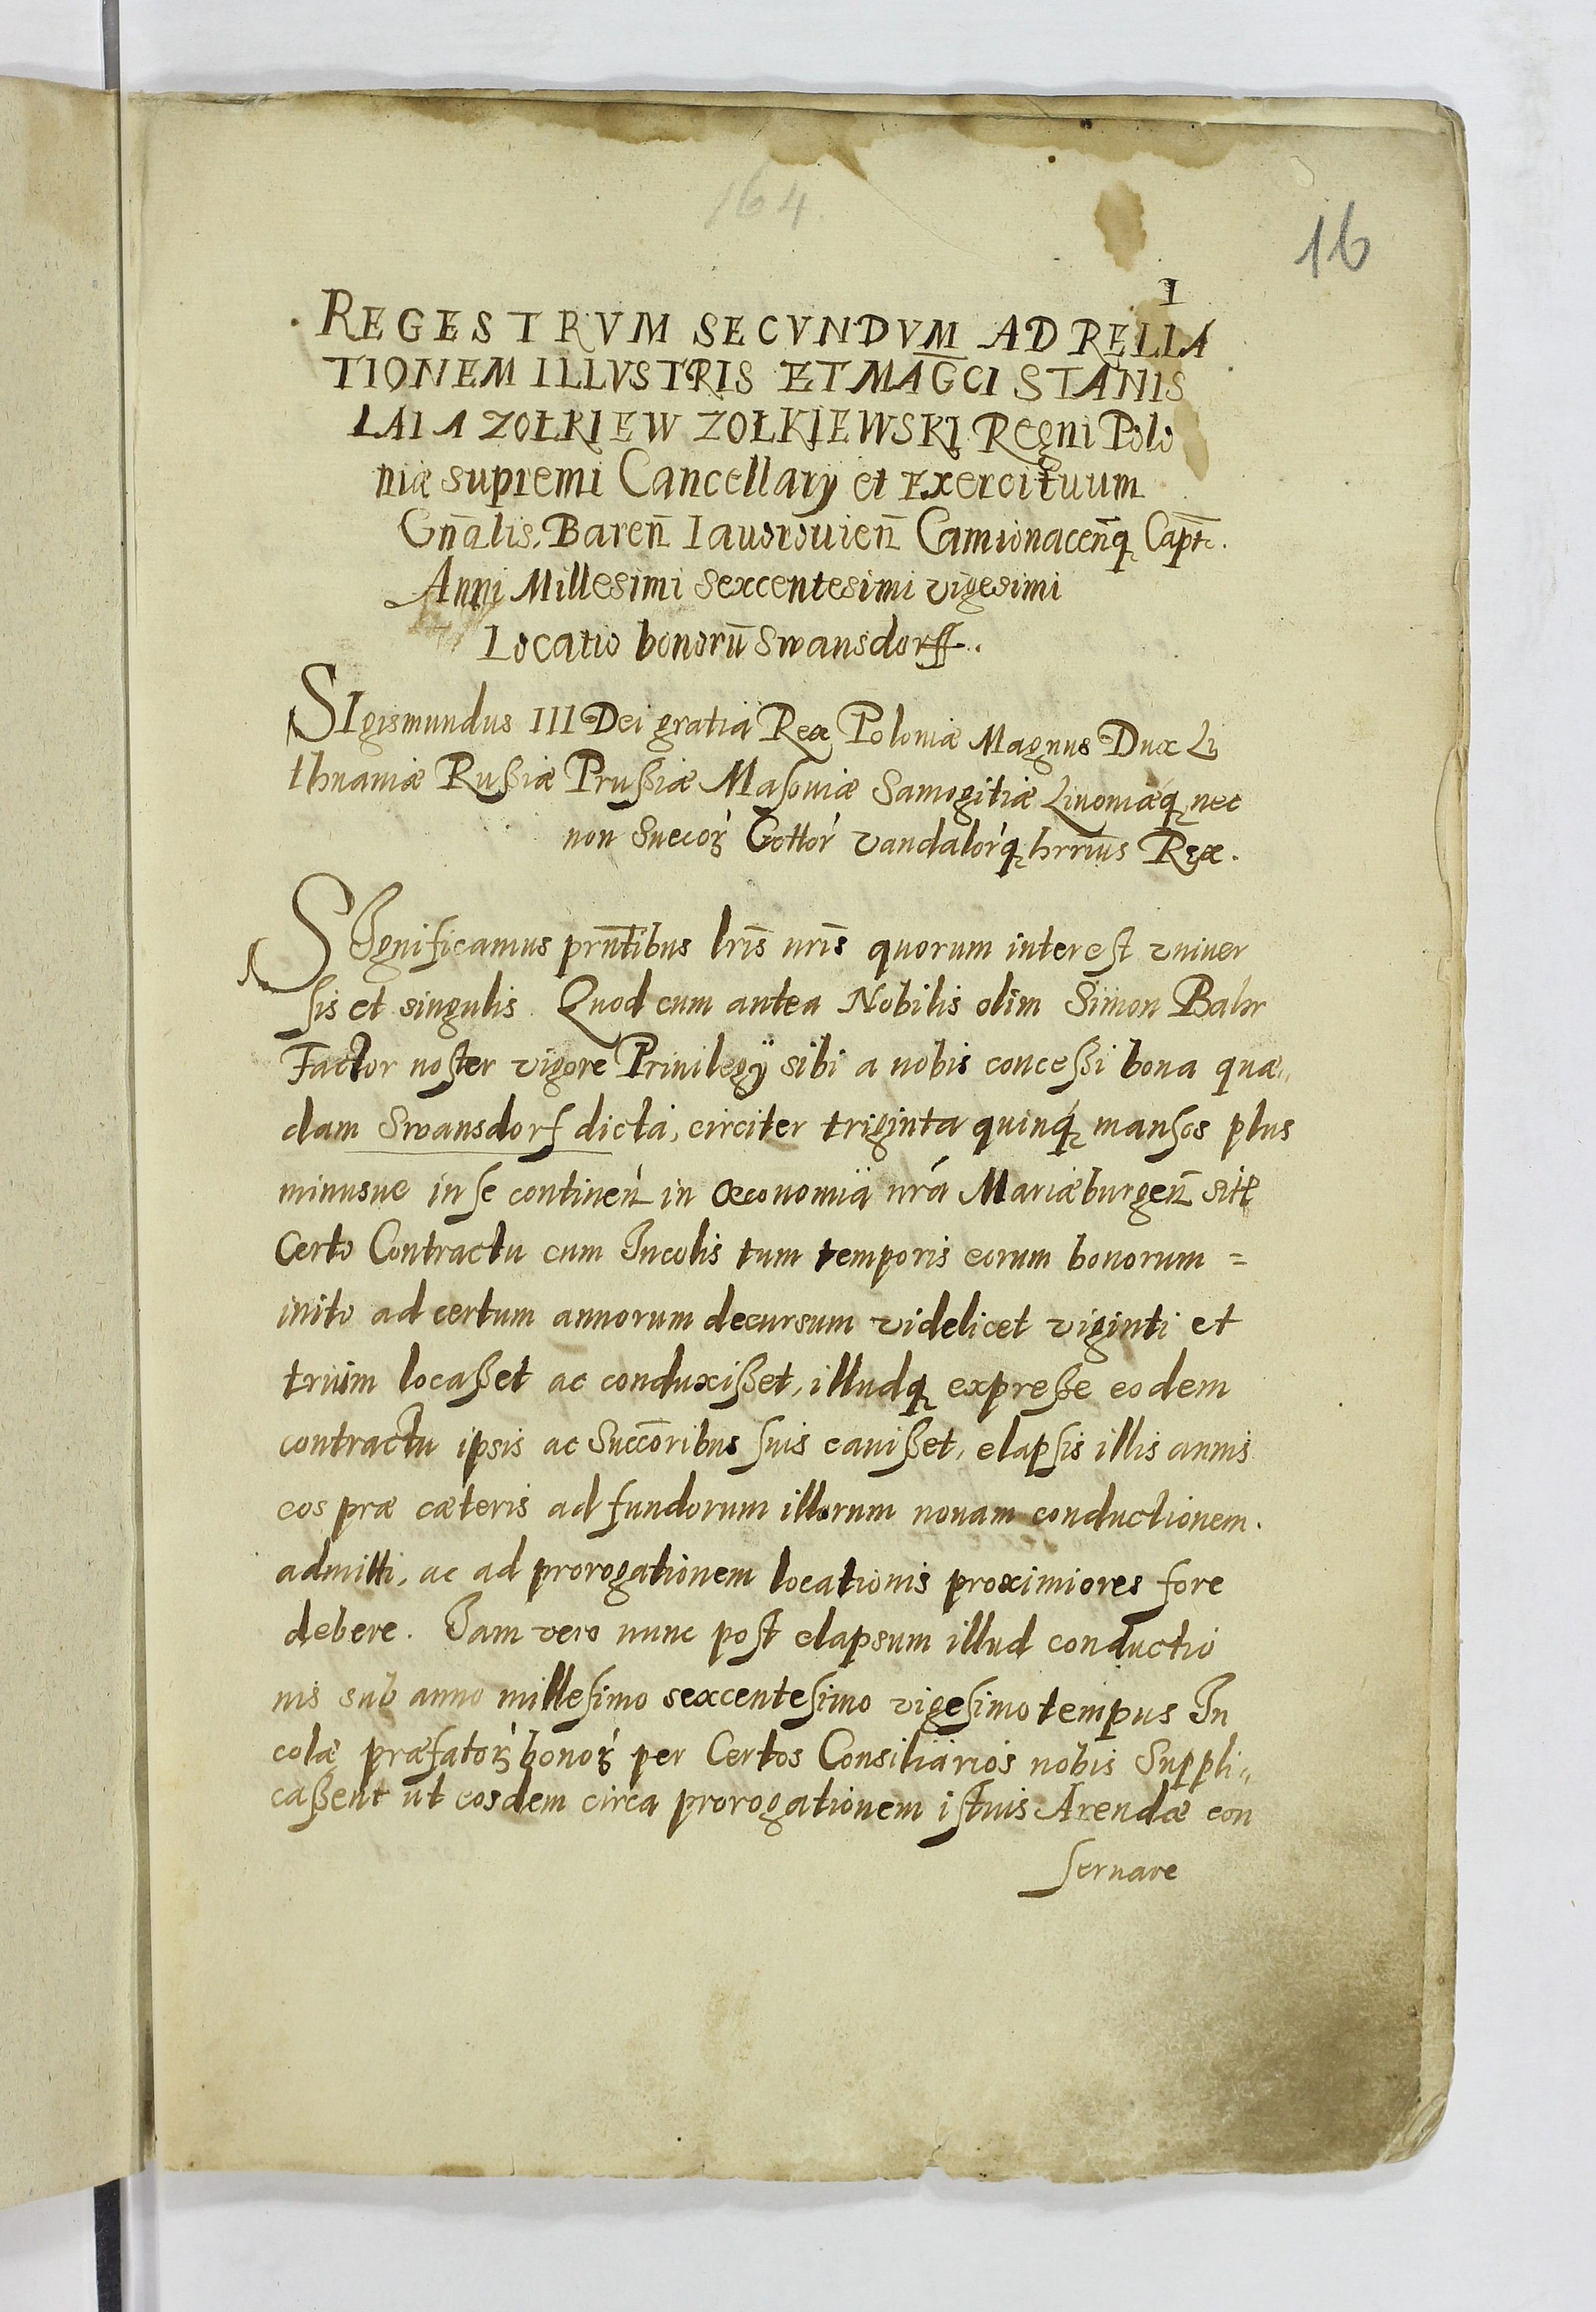 164
16
1
REGESTRVM SECVNDVM AD RELLA
TIONEM ILLVSTRIS ET MAG̅CI STANIS
LAI A ZOŁKIEW ZOŁKIEWSKI Regni Polo
niæ supremi Cancellarÿ et Exercituum
Gn̅alis, Baren̅ Iauorouien̅ Camionacen̅q Capt̅.
Anni Millesimi sexcentesimi vigesimi
Locatio bonorū Swansdorff.
SIgismundus III Dei gratia Rex Poloniæ Magnus Dux Li
thuaniæ Rußiæ Prußiæ Masouiæ Samogitiæ Liuoniæq nec
non Suecoꝝ Gottoꝝ vandaloꝝq hrrius Rex.
SIgnificamus prn̅tibus lris̅ nris̅ quorum interest vniuer
sis et singulis. Quod cum antea Nobilis olim Simon Bahr
Factor noster vigore Priuilegÿ sibi a nobis conceßi bona quæ„
dam Swansdorf dicta, circiter triginta quinq mansos plus
minusue in se continen̅ in Œconomia nrá Mariæburgen̅ sit̅
Certo Contractu cum Incolis tum temporis eorum bonorum =
inito ad certum annorum decursum videlicet viginti et
trium locaßet ac conduxißet, illudq expreße eodem
contractu ipsis ac Succo̅ribus suis cauißet, elapsis illis annis
eos præ cæteris ad fundorum illorum nouam conductionem.
admitti, ac ad prorogationem locationis proximiores fore
debere. Iam vero nunc post elapsum illud conductio
nis sub anno millesimo sexcentesimo vigesimo tempus In
colæ præfatoꝝ bonoꝝ per Certos Consiliarios nobis Suppli„
caßent ut eosdem circa prorogationem istius Arendæ con
seruare